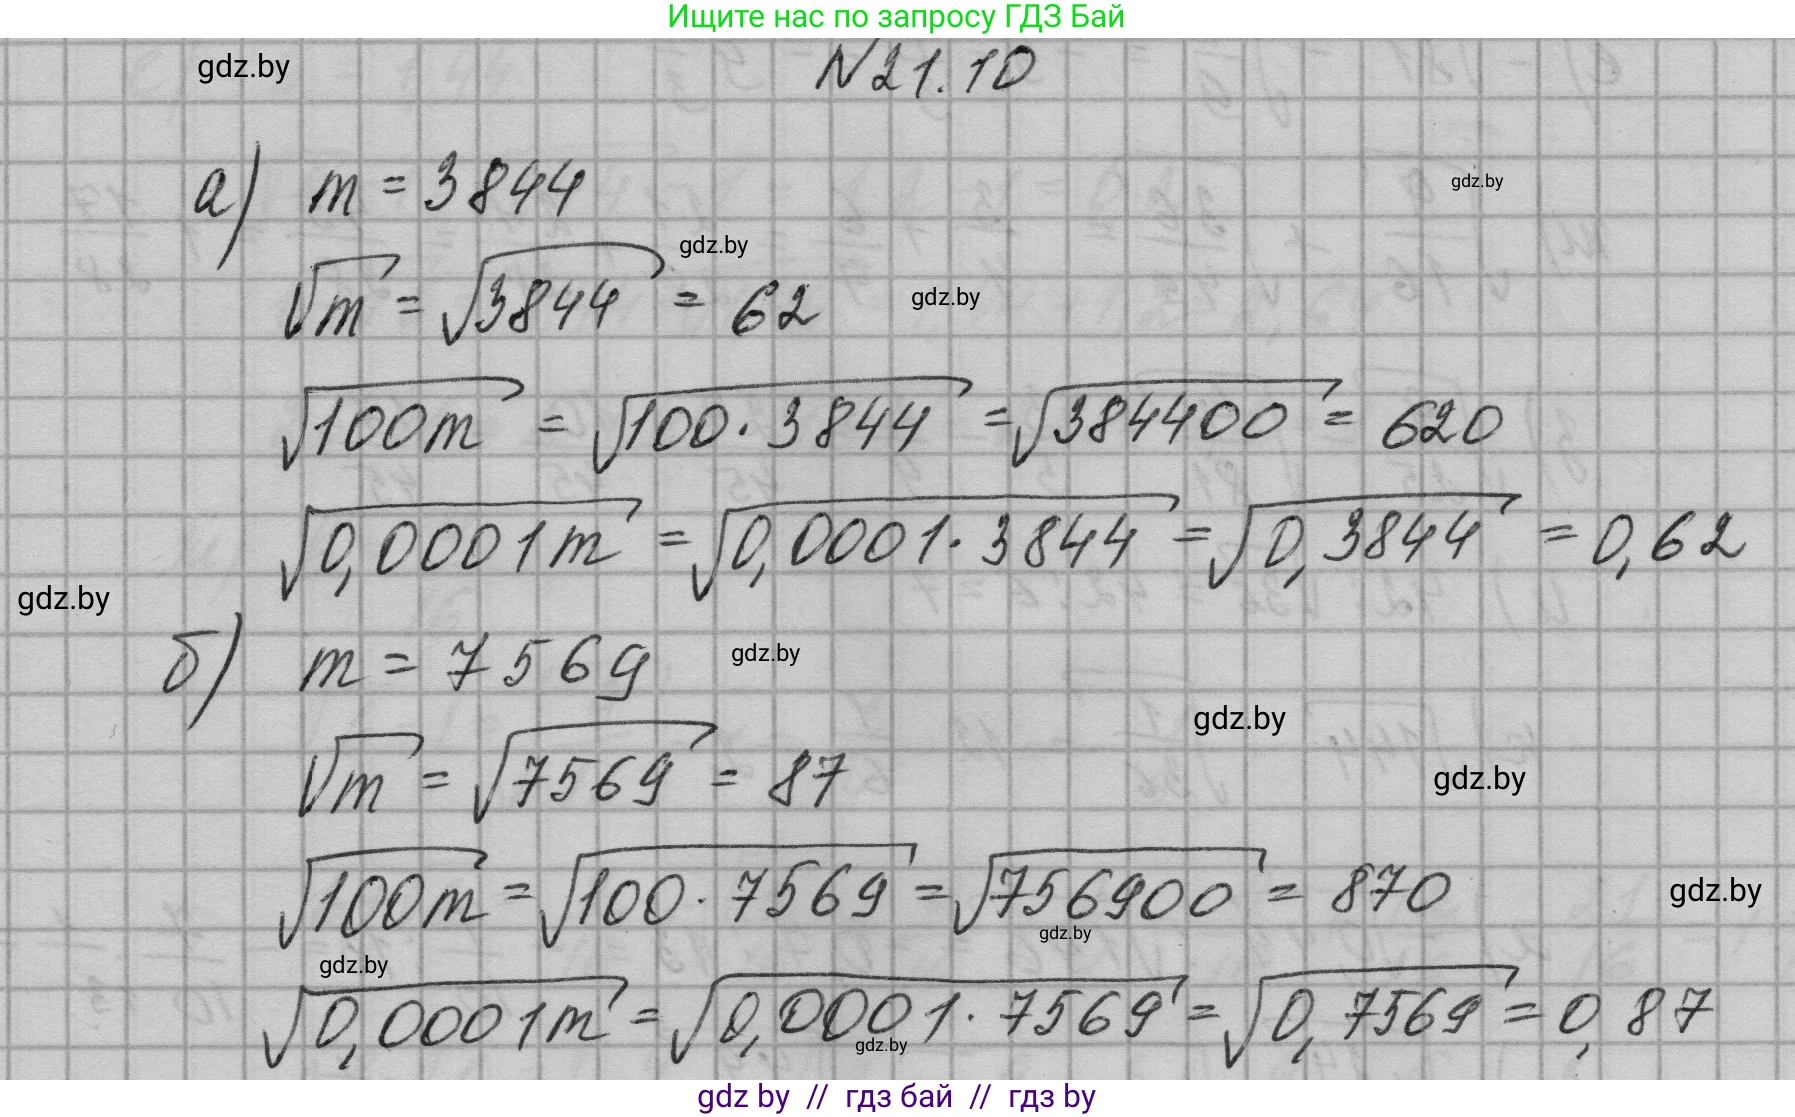 Ищите нас по запросу ГДЗ Бай
gdz.by
N21.10
а) m = 3844
gdz.by
√m = √3844 = 62
gdz.by
gdz.by
√100m = √100·3844 = √384400 = 620
√0,0001m = √0,0001·3844 = √0,3844 = 0,62
gdz.by
б) m = 7569
gdz.by
gdz.by
√m = √7569 = 87
gdz.by
√100m = √100·7569 = √756900 = 870
gdz.by
gdz.by
gdz.by
√0,0001m = √0,0001·7569 = √0,7569 = 0,87
gdz.by
gdz by // гдз бай // гдз by